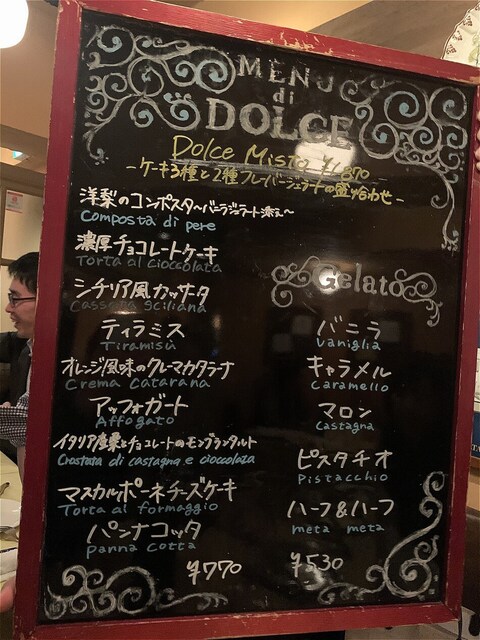 MENU
di
DOLCE
Dolce Misto ¥1,870
-ケーキ3種と2種フレーバージェラートの盛り合わせ-
洋梨のコンポスタ〜バニラジェラート添え〜
Composta di pere
濃厚チョコレートケーキ
Torta al cioccolata
シチリア風カッサータ
Cassata siciliana
ティラミス
Tiramisù
オレンジ風味のクレーマカタラーナ
Crema Catarana
アッフォガート
Affogato
イタリア産栗とチョコレートのモンブランタルト
Crostata di castagna e cioccolata
マスカルポーネチーズケーキ
Torta al formaggio
パンナコッタ
panna cotta
¥770
Gelato
バニラ
Vaniglia
キャラメル
Caramello
マロン
Castagna
ピスタチオ
Pistacchio
ハーフ&ハーフ
meta meta
¥530